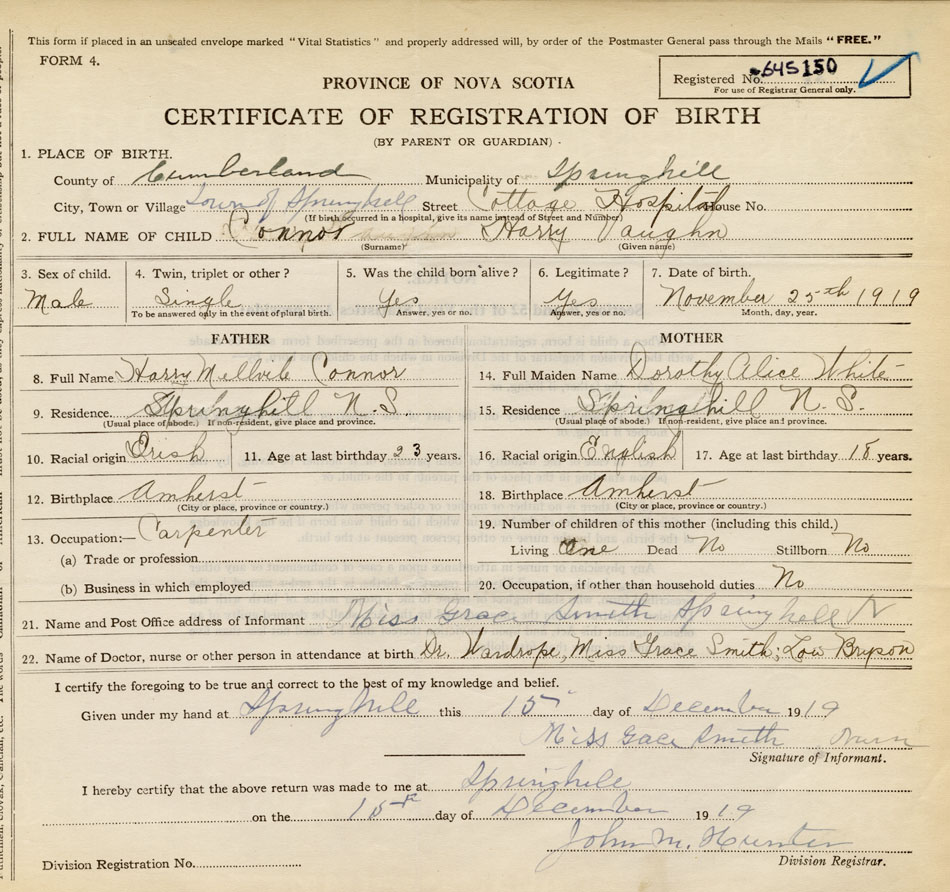 This form if placed in an unsealed envelope marked "Vital Statistics" and properly addressed will, by order of the Postmaster General pass through the Mails "FREE."
FORM 4.
Registered No. 645150
For use of Registrar General only.
PROVINCE OF NOVA SCOTIA
CERTIFICATE OF REGISTRATION OF BIRTH
(BY PARENT OR GUARDIAN)
1. PLACE OF BIRTH.
County of Cumberland Municipality of Springhill
City, Town or Village Town of Springhill Street Cottage Hospital House No.
(If birth occurred in a hospital, give its name instead of Street and Number)
2. FULL NAME OF CHILD Connor Harry Vaughn
(Surname) (Given name)
3. Sex of child. 4. Twin, triplet or other? 5. Was the child born alive? 6. Legitimate? 7. Date of birth.
Male Single Yes Yes November 25th 1919
To be answered only in the event of plural birth. Answer, yes or no. Answer, yes or no. Month, day, year.
FATHER MOTHER
8. Full Name Harry Mellvile Connor 14. Full Maiden Name Dorothy Alice White
9. Residence. Springhill N.S. 15. Residence Springhill N.S.
(Usual place of abode.) If non-resident, give place and province. (Usual place of abode.) If non-resident, give place and province.
10. Racial origin Irish 11. Age at last birthday 23 years. 16. Racial origin English 17. Age at last birthday 18 years.
12. Birthplace Amherst 18. Birthplace Amherst
(City or place, province or country.) (City or place, province or country.)
13. Occupation:— Carpenter 19. Number of children of this mother (including this child.)
(a) Trade or profession Living One Dead No Stillborn No
(b) Business in which employed 20. Occupation, if other than household duties No
21. Name and Post Office address of Informant Miss Grace Smith Springhill N
22. Name of Doctor, nurse or other person in attendance at birth Dr. Wardrope, Miss Grace Smith; Lou Bryson
I certify the foregoing to be true and correct to the best of my knowledge and belief.
Given under my hand at Springhill this 15 day of December 1919
Miss Gace Smith Nurse
Signature of Informant.
I hereby certify that the above return was made to me at Springhill
on the 15th day of December 1919
John M. Hunter
Division Registration No. Division Registrar.